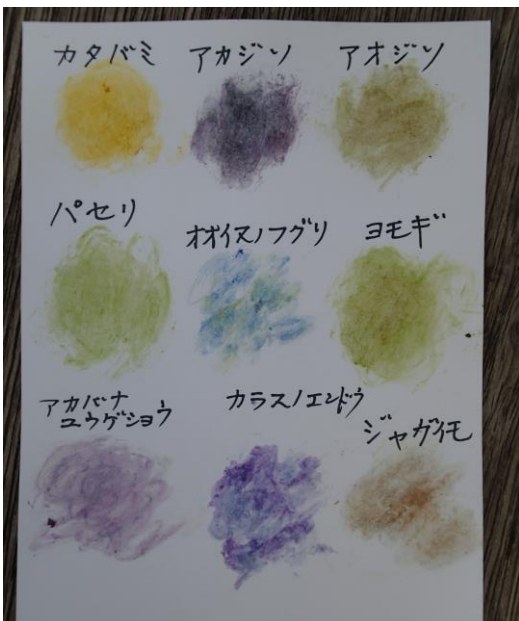 カタバミ
アカジソ
アオジソ
パセリ
オオイヌノフグリ
ヨモギ
アカバナ
ユウゲショウ
カラスノエンドウ
ジャガイモ